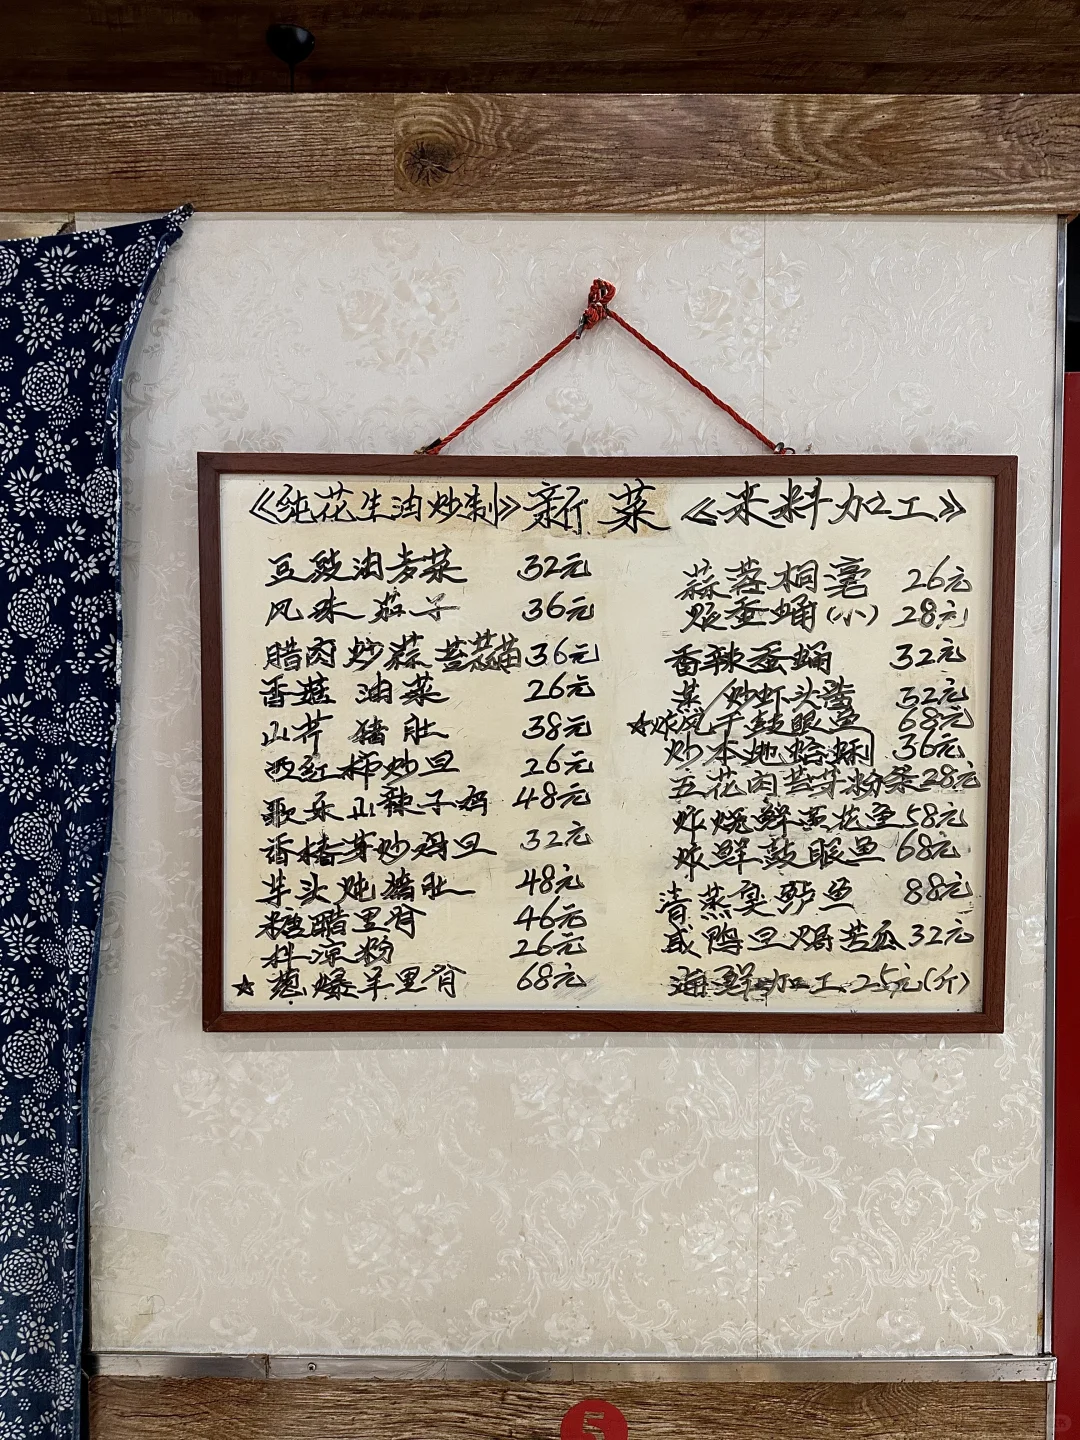 《纯花生油炒制》新菜《来料加工》
豆豉油麦菜 32元
风味茄子 36元
腊肉炒蒜苔 36元
香菇油菜 26元
山芹猪肚 38元
西红柿炒旦 26元
歌乐山辣子鸡 48元
香椿芽炒鸡旦 32元
芋头炖猪肚 48元
糖醋里脊 46元
拌凉粉 26元
☆葱爆羊里脊 68元
蒜茎桐毫 26元
蚕蛹(小) 28元
香辣蚕蛹 32元
蒸/炒虾头酱 32元
☆炸风干鼓眼鱼 68元
炒本地蛤蜊 36元
五花肉芸芽粉条 28元
炸烧鲜黄花鱼 58元
炸鲜鼓眼鱼 68元
清蒸臭鲈鱼 88元
咸鸭旦焗苦瓜 32元
海鲜加工25元(斤)
5